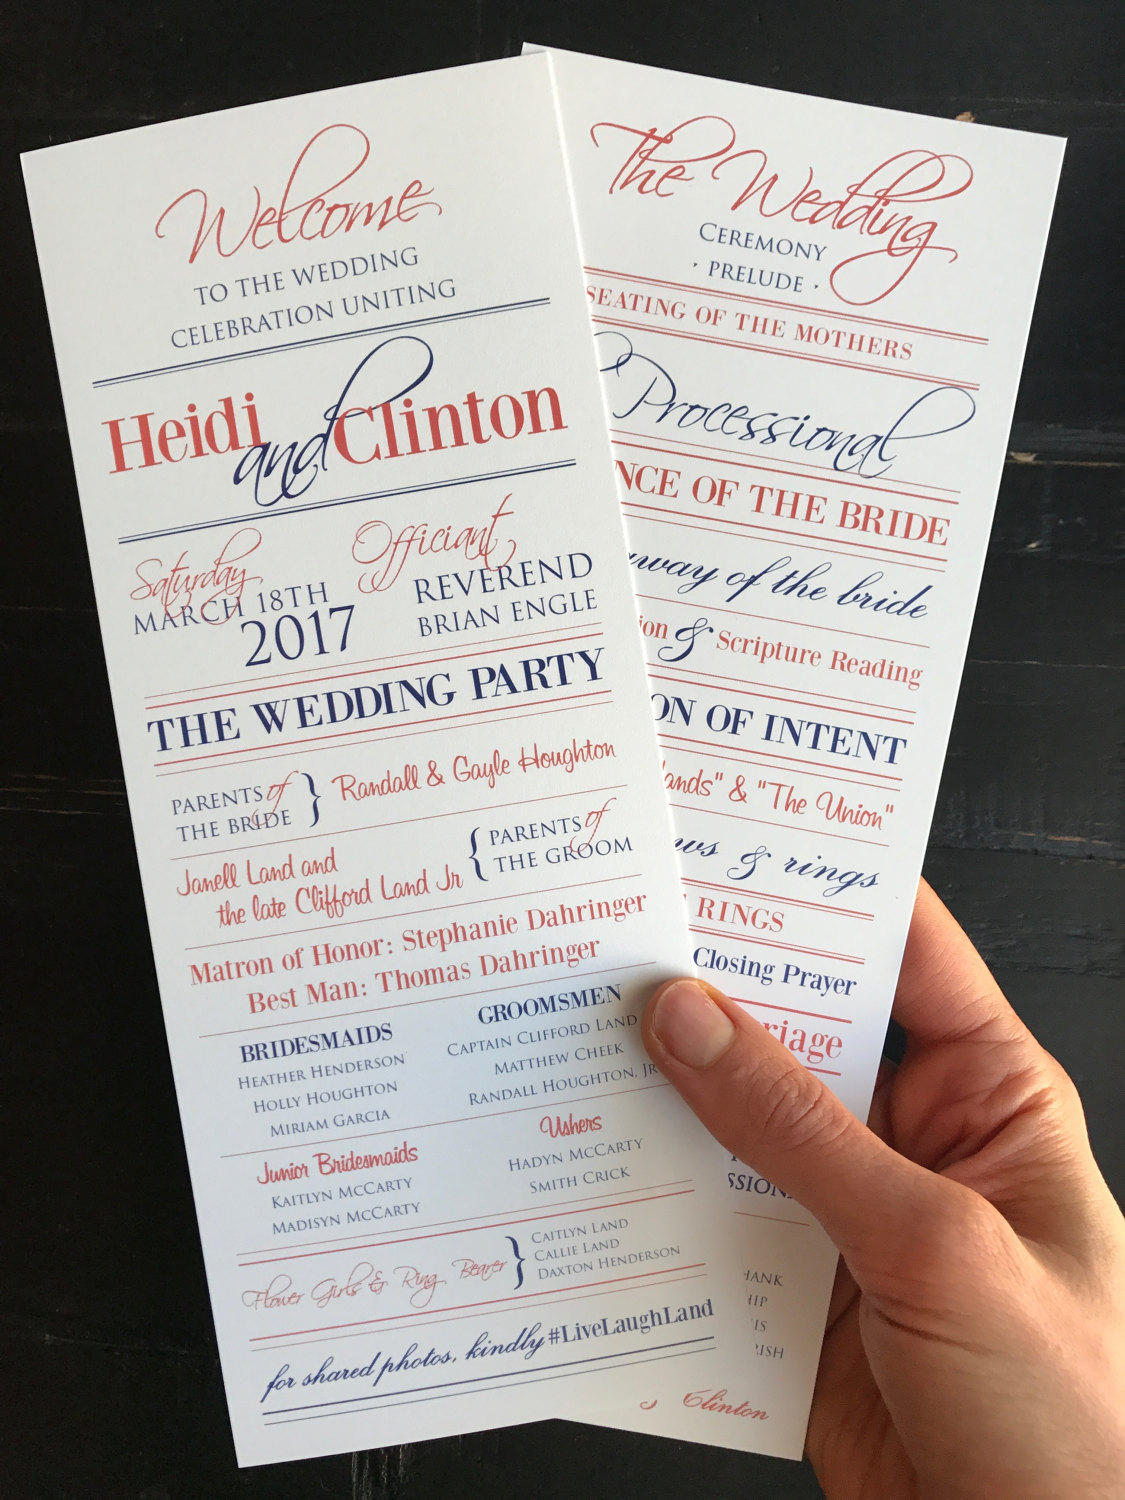 Welcome
TO THE WEDDING
CELEBRATION UNITING
Heidi and Clinton
Saturday
MARCH 18TH
2017
Officiant
REVEREND
BRIAN ENGLE
THE WEDDING PARTY
PARENTS of
THE BRIDE } Randall & Gayle Houghton
Janell Land and
the late Clifford Land Jr { PARENTS of
THE GROOM
Matron of Honor: Stephanie Dahringer
Best Man: Thomas Dahringer
BRIDESMAIDS
HEATHER HENDERSON
HOLLY HOUGHTON
MIRIAM GARCIA
GROOMSMEN
CAPTAIN CLIFFORD LAND
MATTHEW CHEEK
RANDALL HOUGHTON, JR
Junior Bridesmaids
KAITLYN MCCARTY
MADISYN MCCARTY
Ushers
HADYN MCCARTY
SMITH CRICK
Flower Girls & Ring Bearer }
CAITLYN LAND
CALLIE LAND
DAXTON HENDERSON
for shared photos, kindly #LiveLaughLand
The Wedding
CEREMONY
· PRELUDE ·
SEATING OF THE MOTHERS
Processional
NCE OF THE BRIDE
away of the bride
ion & Scripture Reading
ON OF INTENT
ands" & "The Union"
ws & rings
RINGS
Closing Prayer
riage
SSION
HANK
HIP
IS
RISH
Clinton